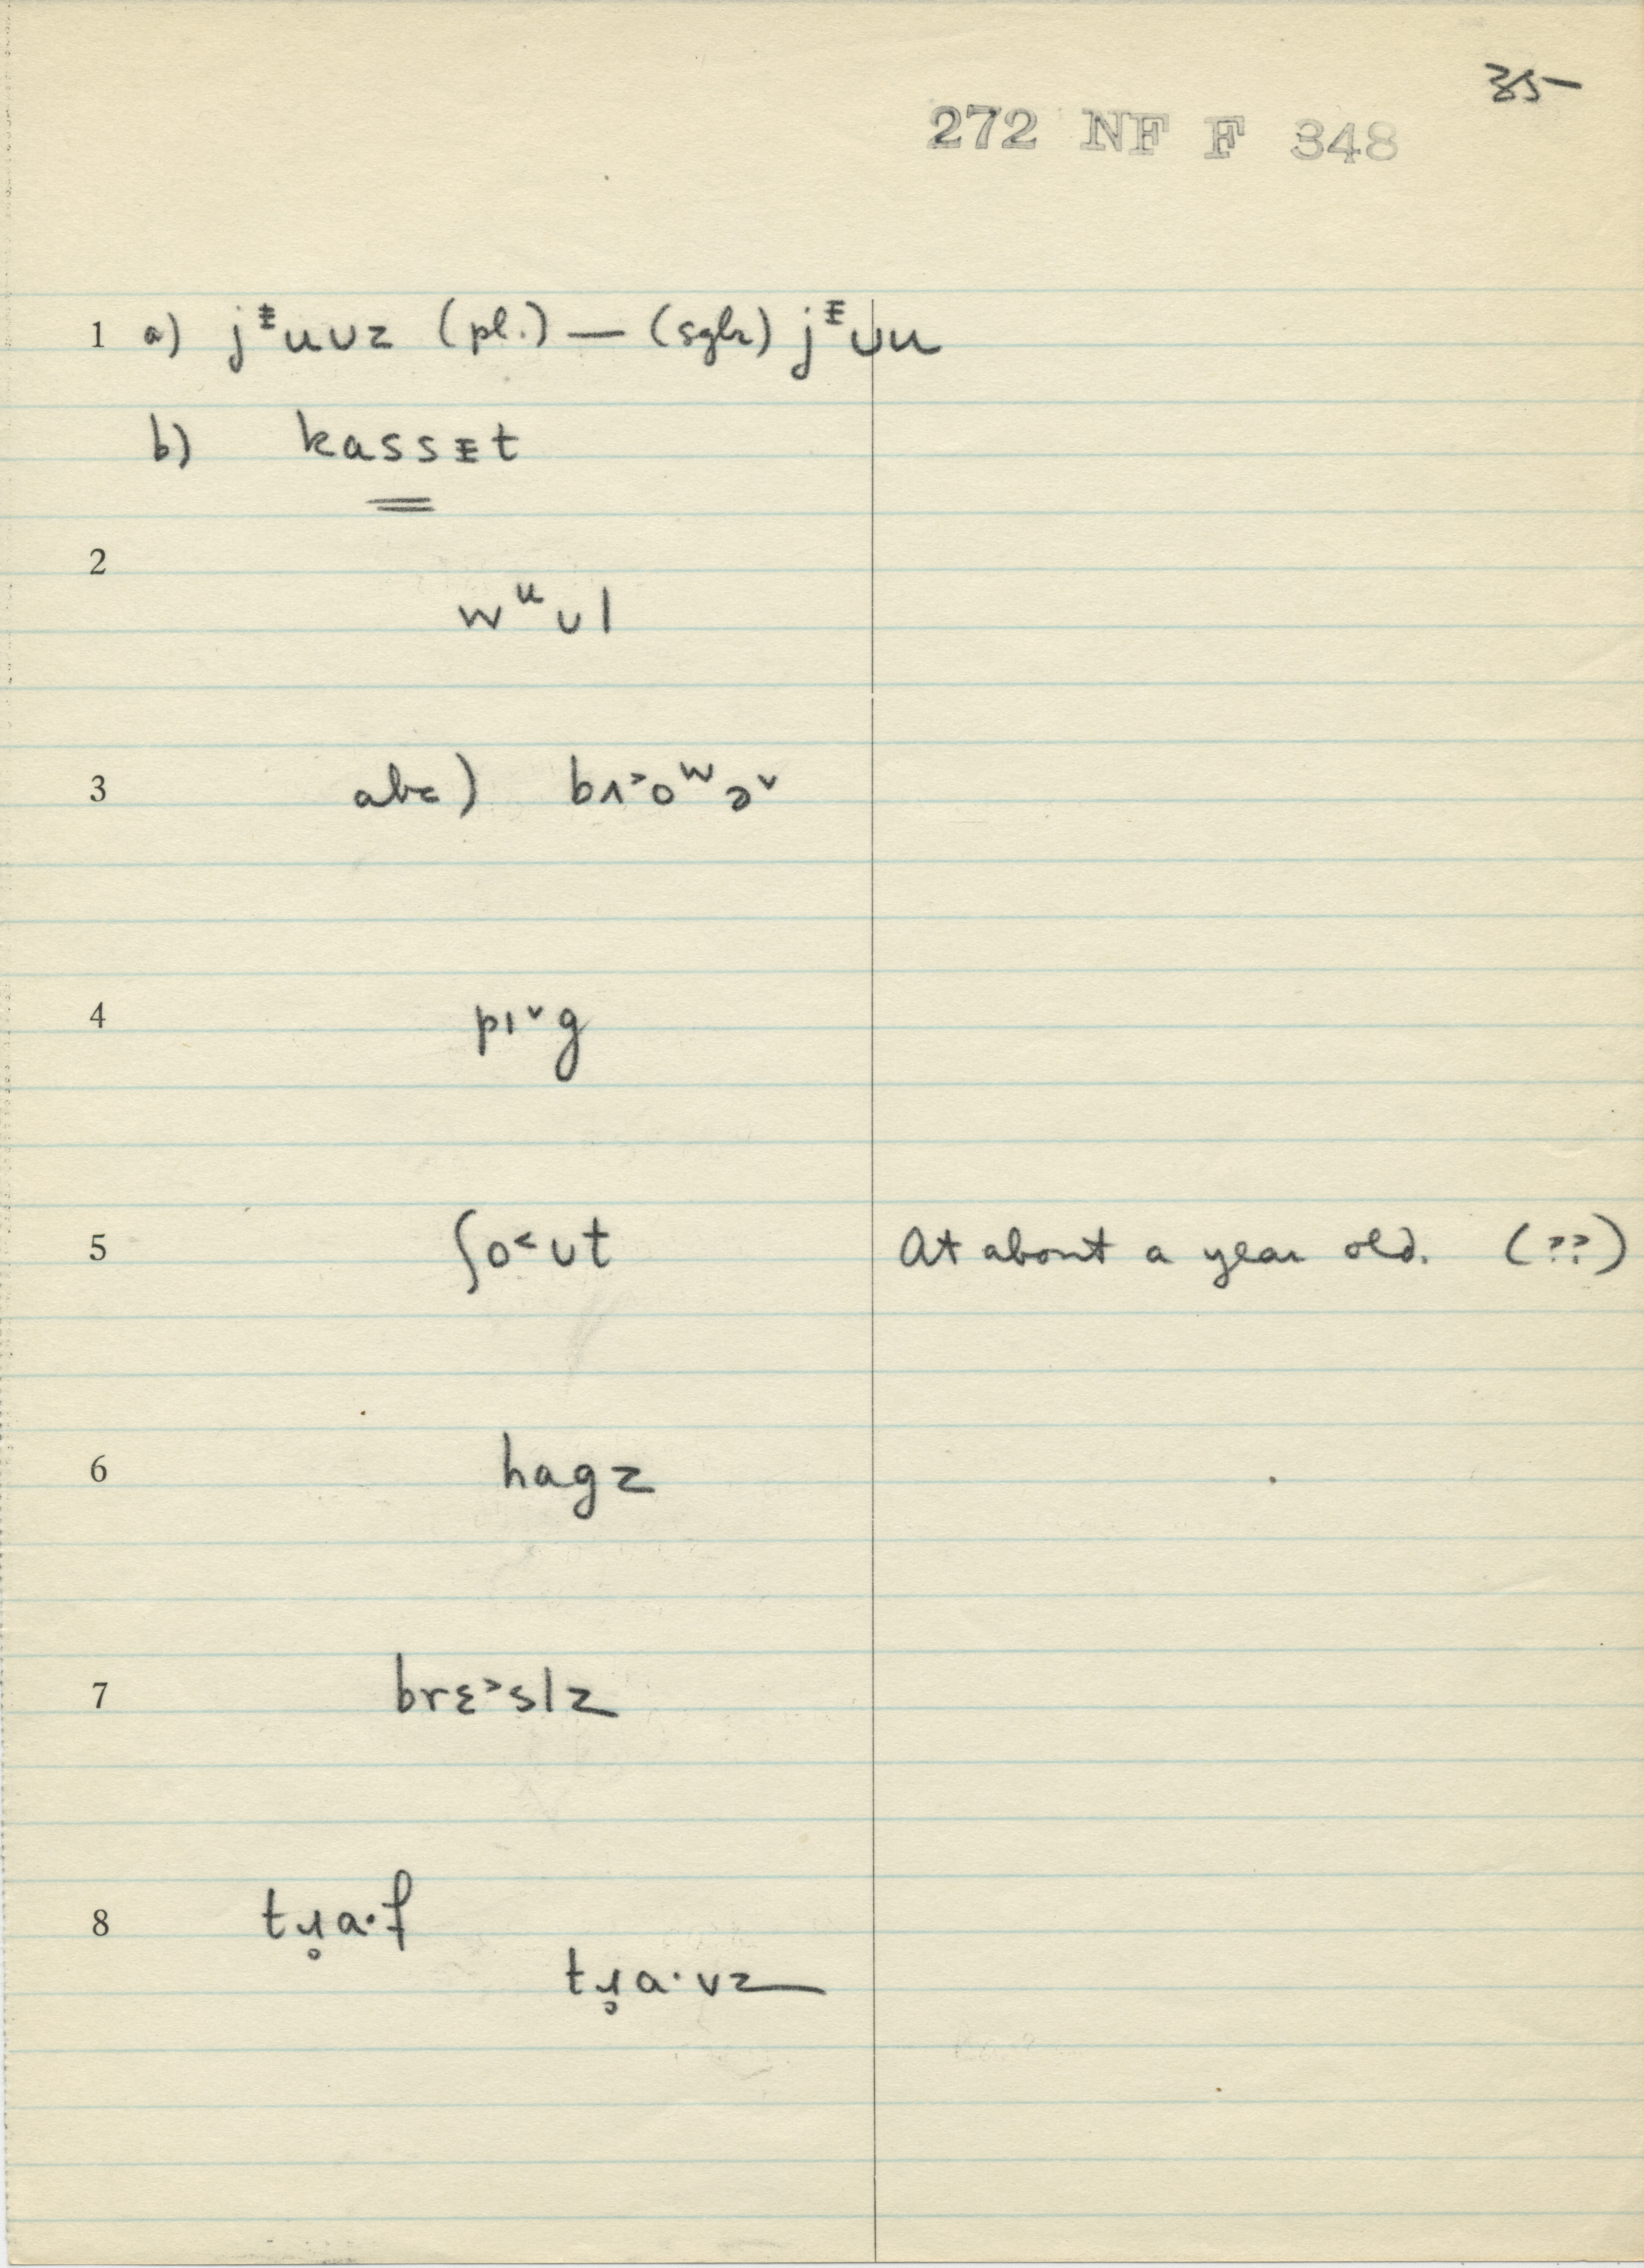 35-
272 NF F 348
1 a) jᵻuʊz (pl.) — (sglr) jᵻʊu
b) kassᵻt
2
wᵘʊl
3 abc) bʌ˃oʷə˅
4 pɪ˅g
5 ʃo˂ʊt At about a year old. (??)
6 hagz
7 brɛ˃slz
8 tɹ̥a·f
tɹ̥a·vz